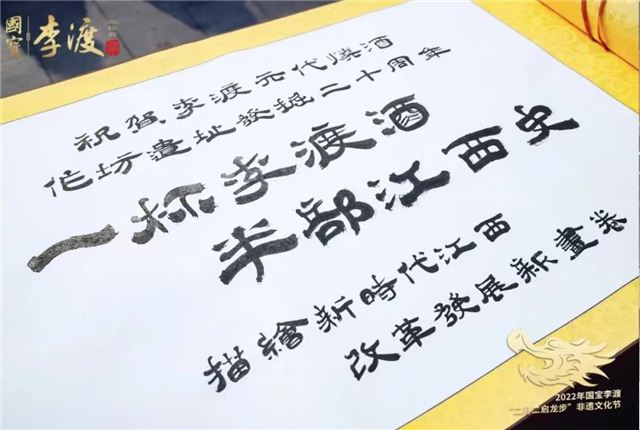 國寶李渡
祝賀李渡元代燒酒
作坊遺址發掘二十周年
一杯李渡酒
半部江西史
描繪新時代江西
改革發展新畫卷
2022年国宝李渡
“二月二启龙步”非遗文化节